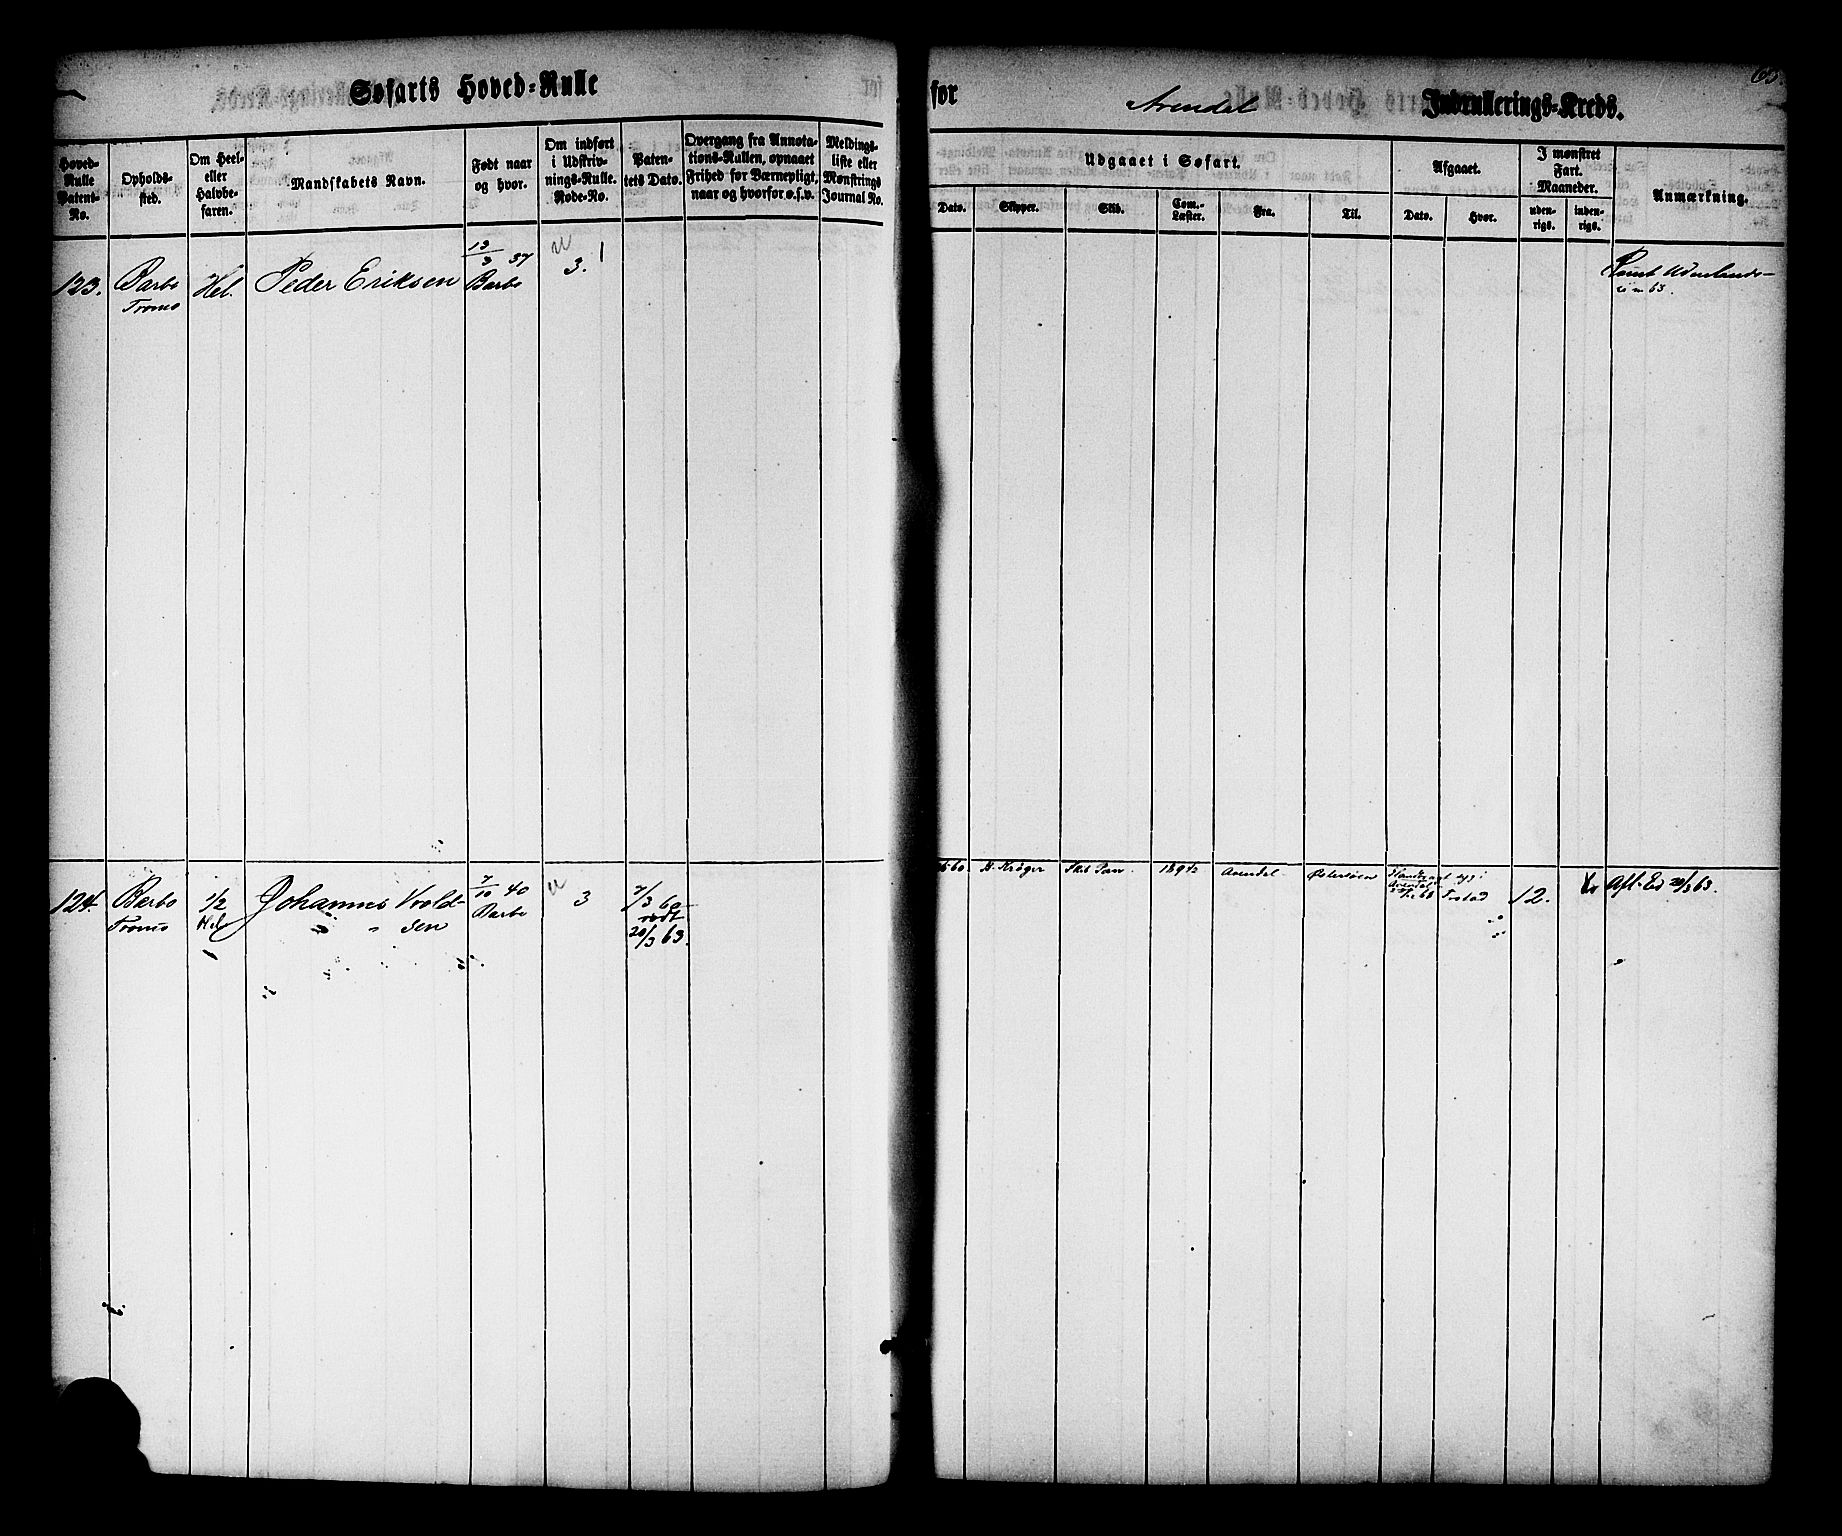 Søfarts Hoved-Rulle
for Arendal Indrullerings-Kreds.
65
Hoved-Rulle Patent-No.
Opholds-sted.
Om Heel- eller Halvbe-faren.
Mandskabets Navn.
Født naar og hvor.
Om indført i Udskriv-nings-Rulle. Rode-No.
Paten-tets Dato.
Overgang fra Annota-tions-Rullen, opnaaet Frihed for Værnepligt, naar og hvorfor o.s.v.
Meldings-liste eller Mønstrings Journal No.
Udgaaet i Søfart.
Dato.
Skipper.
Skib.
Com.-Læster.
Fra.
Til.
Afgaaet.
Dato.
Hvor.
I mønstret Fart. Maaneder.
uden-rigs.
inden-rigs.
Anmærkning.
123.
Barbo
Tromø
Hel.
Peder Eriksen
13/3 37
Barbo
3.
1
63.
124.
Barbo
Tromø
1/2
Hel
Johannes Wold-
sen
7/10 40
Barbo
3
7/3 60
rødt
20/3 63.
60.
H. Krøger
Skib
189½
Arendal
Østersøen
Arendal
12.
Afl. Ed 20/3 63.